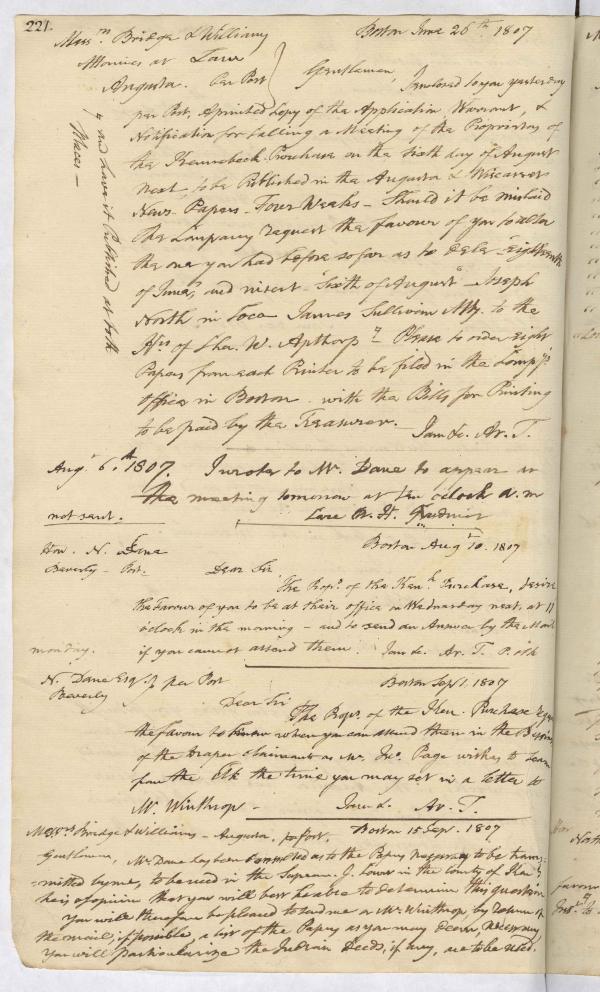 221.
Mess.rs Bridge & Williams
Attornies at Law
Augusta. Per Post
Boston June 26th 1807
Gentlemen, I inclosed to you yesterday
per Post, a printed Copy of the Application, Warrant, &
Notification for calling a Meeting of the Proprietors of
the Kennebeck Purchase on the sixth day of August
next, to be Published in the Augusta & Wiscasset
News-Papers Four Weeks - Should it be mislaid
the Company request the favour of you to alter
the one you had before so far as to dele "Eighteenth
of June," and insert "Sixth of August" - Joseph
North in loco James Sullivan Atty. to the
of Cha. W. Apthorp - Please to order Eight
Papers from each Printer to be filed in the Comp.ys
Office in Boston with the Bills for Printing
to be paid by the Treasurer. I am &c. Ar. T.
& and have it Published at both
Places -
Aug. 6.th 1807. I wrote to Mr. Dane to appear at
the meeting tomorrow at ten oClock A.M
not sent.
Boston Aug.t 10. 1807
Hon. N. Dane
Beverly - Post.
Dear Sir
The Prop.rs of the Ken.k Purchase, desire
the favour of you to be at their office on Wednesday next, at 11
o'clock in the morning - and to send an Answer by the Mail
monday.
if you cannot attend them. I am &c. Ar. T. P. Clk
N. Dane Esq.r per Post
Beverly
Boston Sep.1 1807
Dear Sir
The Prop.rs of the Ken. Purchase
the favour to know when you can attend them in the
of the Draper claimants as Mr. Page wishes to learn
from the Clk the time you may set in a letter to
Mr. Winthrop - I am &c. Ar. T.
Mess.rs Bridge & Williams - Augusta, per Post. Boston 15 Sep. 1807
Gentlemen, Mr. Dane has been consulted as to the Papers necessary to be trans-
-mitted by me, to be used in the Supreme J. Court in the County of Ken.k
he is of opinion that you will best be able to determine this question
You will therefore be pleased to send me or Mr. Winthrop by return of
the mail, if possible a list of the Papers as you may deem, necessary
You will particularize the Indian Deeds, if any, are to be used.